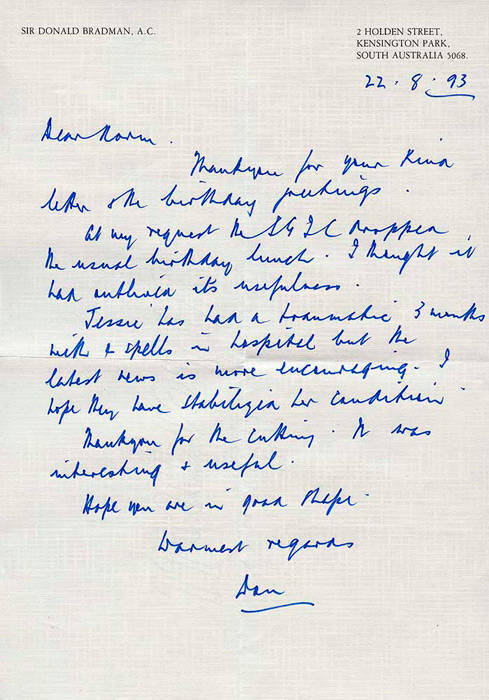 SIR DONALD BRADMAN, A.C.
2 HOLDEN STREET,
KENSINGTON PARK,
SOUTH AUSTRALIA 5068.
22.8.93
Dear Norm.
Thankyou for your kind
letter & the birthday greetings.
At my request the dropped
the usual birthday lunch. I thought it
had outlived its usefulness.
Jessie has had a traumatic 3 months
with 2 spells in hospital but the
latest news is more encouraging. I
hope they have stabilized her condition
Thankyou for the cutting. It was
interesting & useful.
Hope you are in good shape.
Warmest regards
Don